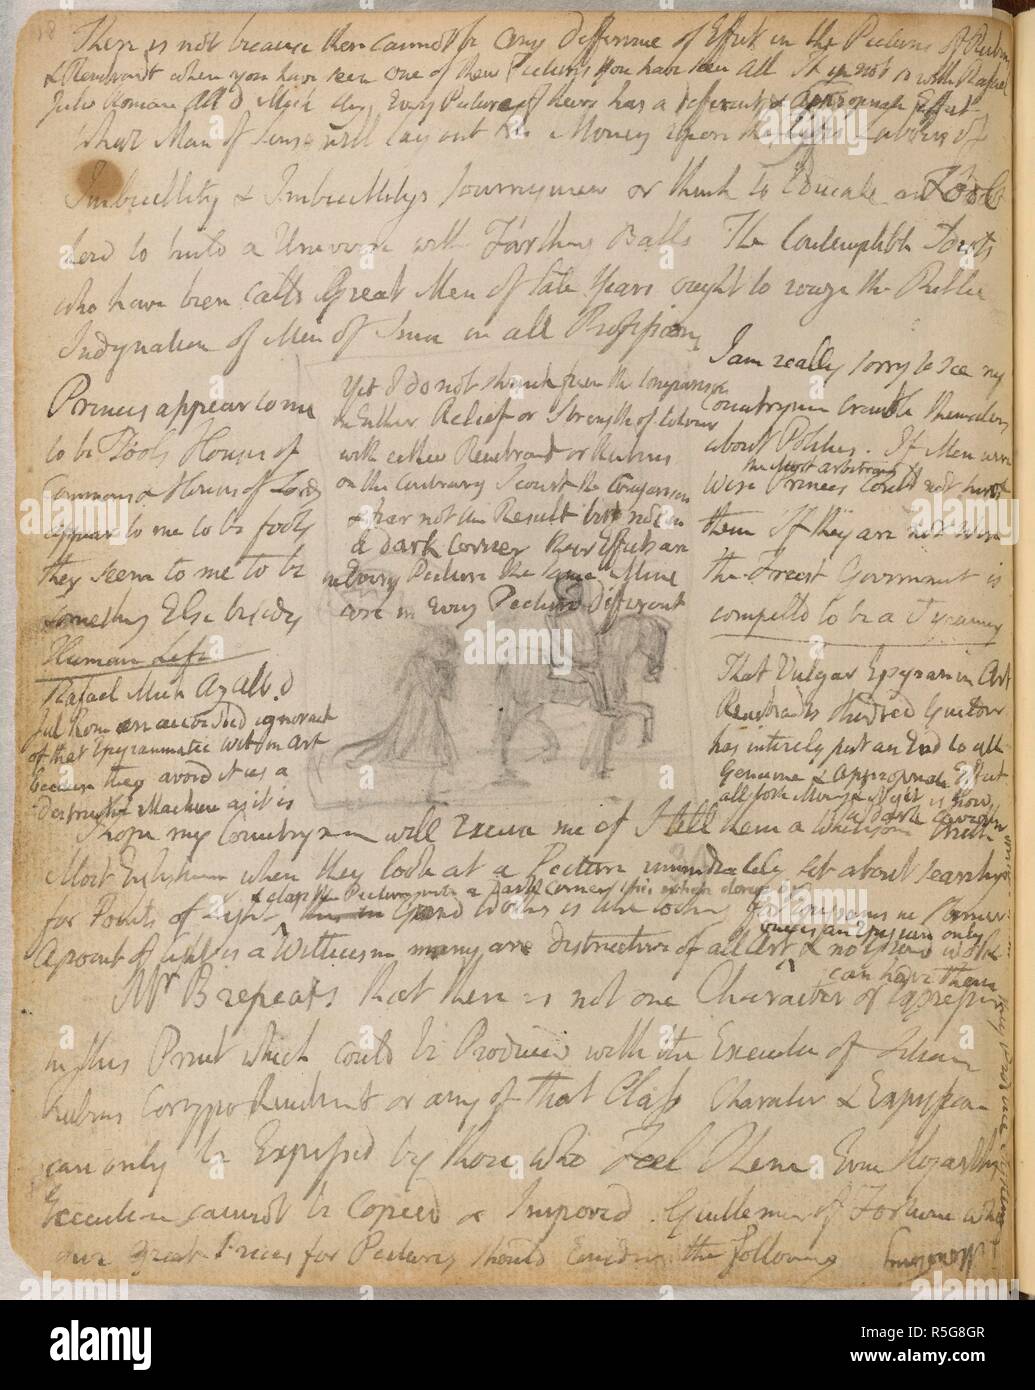 18
There is not because there cannot be any Difference of Effect in the Pictures of Rubens
& Rembrandt when you have seen one of their Pictures you have seen all It is not so with Rafael
Julio Romano Alb d Mich Ang Every Picture of theirs has a different & appropriate Effect
What Man of Sense will lay out his Money upon the Life's Labours of
Imbecillity & Imbecillitys Journeymen or think to Educate an Fool
how to build a Universe with Farthing Balls The Contemptible Idiots
who have been calld Great Men of late Years ought to rouze the Public
Indignation of Men of Sense in all Professions
Princes appear to me
to be Fools Houses of
Commons & Houses of Lords
appear to me to be fools
they seem to me to be
something Else besides
Human Life
Rafael Mich Ang Alb. d
Jul Rom are accounted ignorant
of that Epigrammatic Wit in Art
Because they avoid it as a
Destructive Machine as it is
Yet I do not shrink from the Comparison
in Either Relief or Strength of Colour
with either Rembrandt or Rubens
on the contrary I court the Comparison
& fear not the Result but not in
a dark corner their Effects are
in Every Picture the same Mine
are in Every Picture different
I am really sorry to see my
Countrymen trouble themselves
about Politics. If Men were
Wise the Most arbitrary Princes could not hurt
them If they are not Wise
the Freest Government is
compelld to be a Tyranny
That Vulgar Epigram in Art
Rembrandts Hundred Guilder
has intirely put an End to all
Genuine & appropriate Effect
all both Morng & Night is now
a dark cavern
I hope my Countrymen will Excuse me if I tell them a Wholesom truth
Most Englishmen when they look at a Picture immediately set about searching
for Points of Light & clap the Picture into a dark corner This when done by
Grand Works is like looking for Epigrams in Homer
A point of light is a Witticism many are destructive of all Art
one is an Epigram only
& no Grand Work
can have them
Mr B repeats that there is not one Character or Expression
in this Print which could be Produced with the Execution of Titian
Rubens Coreggio Rembrandt or any of that Class Character & Expression
can only be Expressed by those who Feel Them Even Hogarths
Execution cannot be Copied or Improved. Gentlemen of Fortune who
give Great Prices for Pictures should Consider the following
alamy
alamy
Image ID: R5G8GR
www.alamy.com